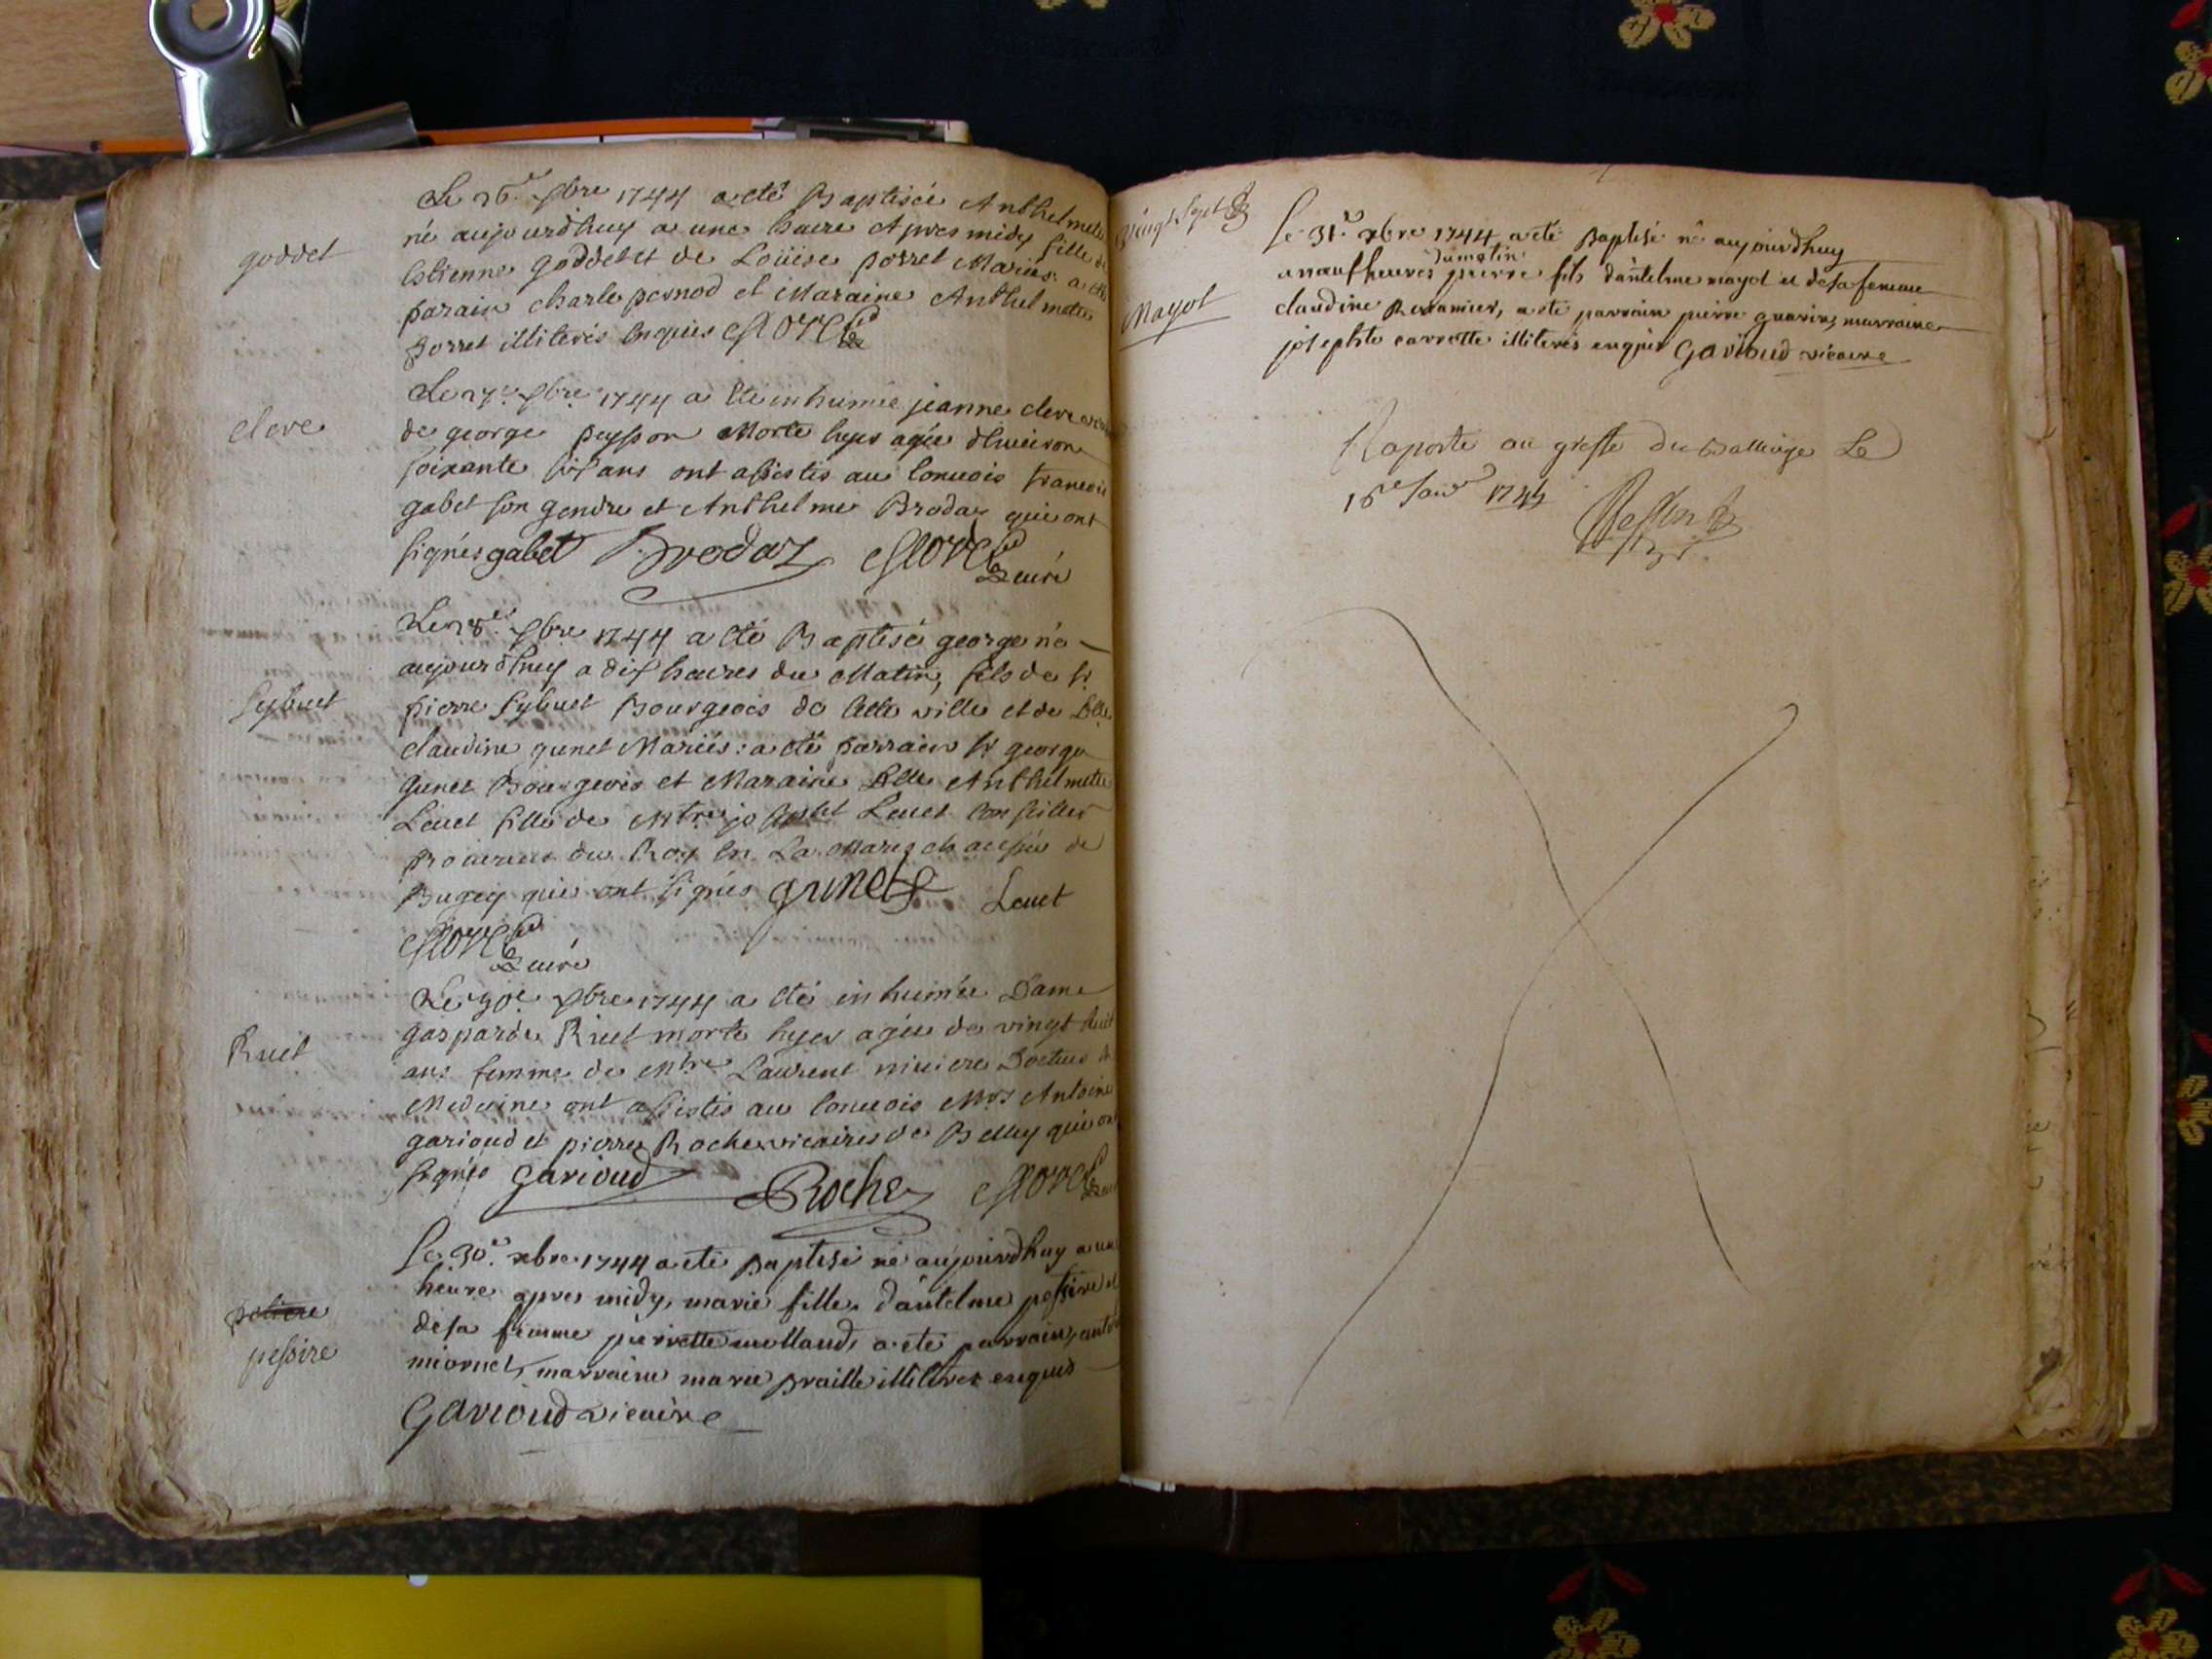 goddet
Le 26.e xbre 1744 a eté Baptisée Anthelmete
né aujourdhuy a une heure Apres midy fille de
Estienne goddet et de Loüise porret Mariés: a eté
parain charle pernod et Maraine Anthelmete
porret illiterés enquis
cleve
Le 27.e xbre 1744 a eté inhumée jeanne cleve
de george peysson Morte hyer agée d'environ
soixante six ans ont assistés au convois francois
gabet son gendre et Anthelme Brodaz qui ont
signés gabet Brodaz curé
Sybuet
Le 28.e xbre 1744 a eté Baptisé george né
aujourdhuy a dix heures du Matin, fils de Sr
pierre Sybuet Bourgeois de cette ville et de Dlle
claudine gunet Mariés: a eté parrain Sr george
gunet Bourgeois et Maraine Dlle Anthelmete
Leuet fille de Mtre joseph Leuet Conseiller
procureur du Roy en La Marechaussée de
Bugey qui ont signés gunet Leuet
curé
Ruet
Le 30e xbre 1744 a eté inhumée Dame
gasparde Ruet morte hyer agée de vingt huit
ans femme de Mtre Laurent niuiere Docteur
Medecine ont assistés au convois Mrs Antoine
garioud et pierre Roche vicaires de Belley qui ont
signés Garioud Roche
pessire
Le 30.e xbre 1744 a eté Baptisé né aujourdhuy a une
heure apres midy, marie fille d'antelme pessire et
de sa femme pierrette mollaud, a eté parrain,
miornet, marraine marie praille illiterés enquis
Garioud vicaire
Vingt Sept
Mayot
Le 31.e xbre 1744 a eté Baptisé né aujourdhuy
a neuf heures du matin pierre fils d'antelme mayot et de sa femme
claudine, a eté parrain pierre guarin, marraine
josephte carrette illiterés enquis Garioud vicaire
Raporté au greffe du Balliage Le
16e Janr